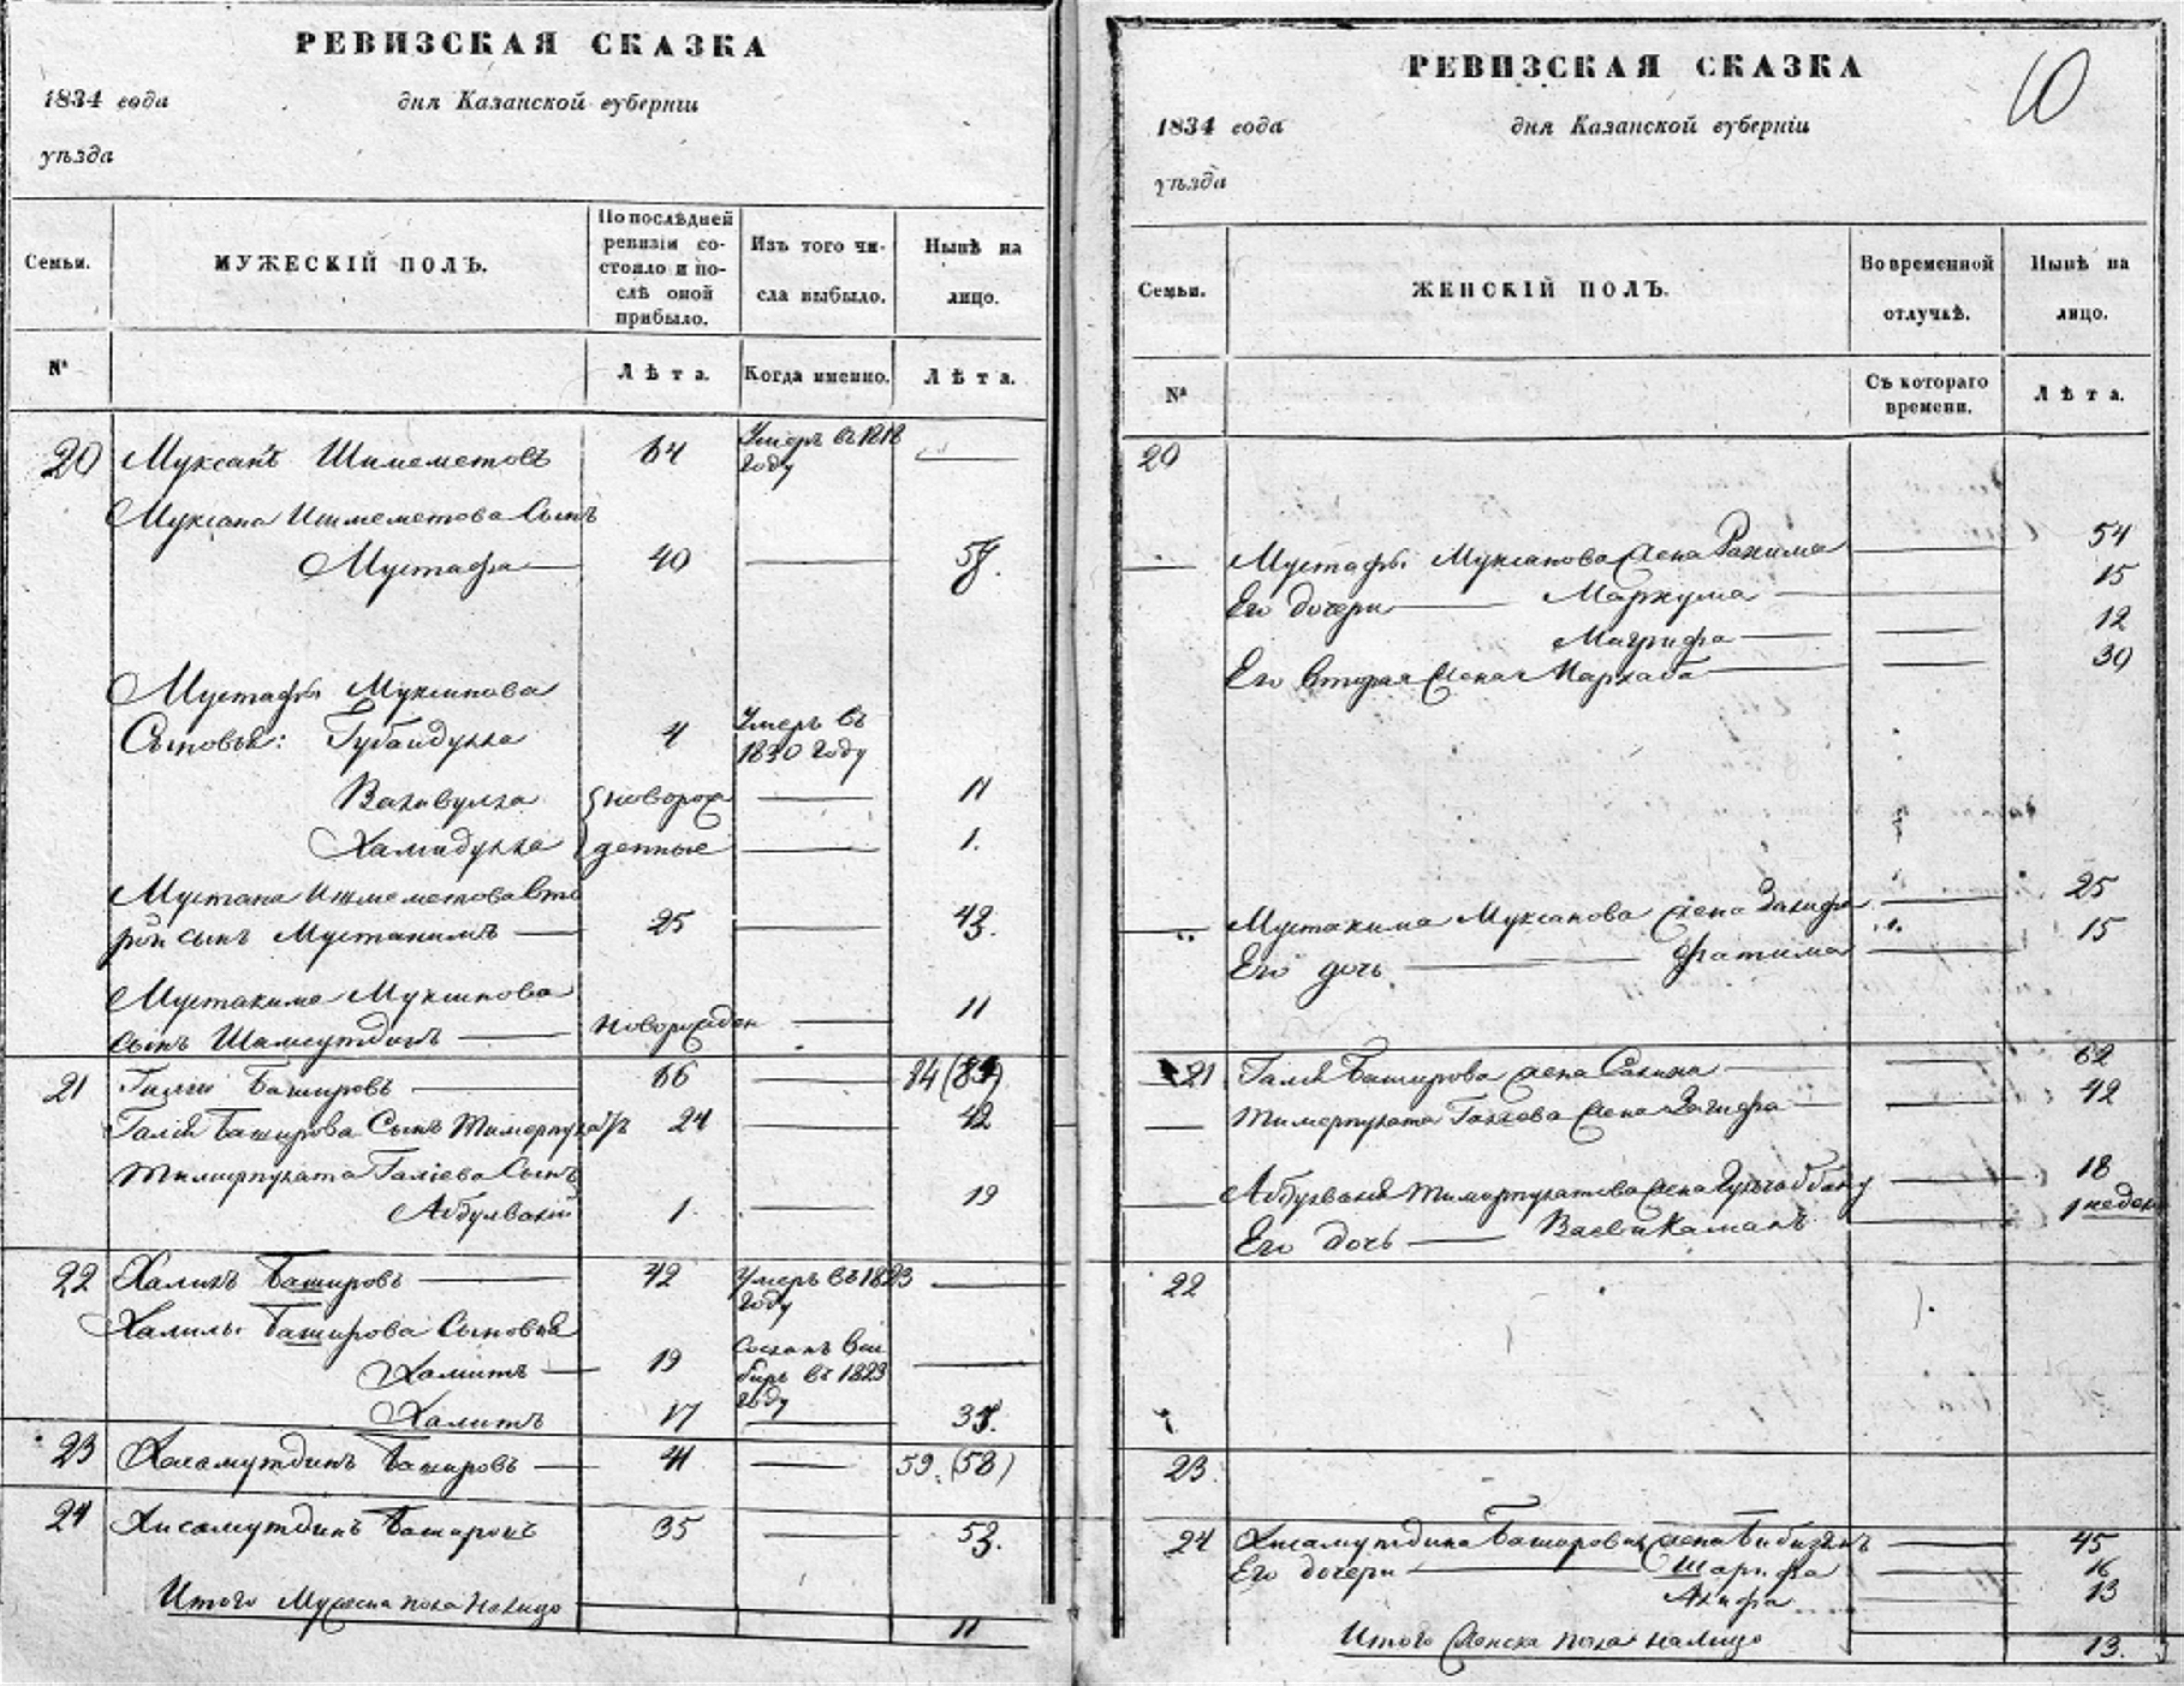 РЕВИЗСКАЯ СКАЗКА
1834 года дня Казанской губерніи
уѣзда
Семьи.
МУЖЕСКІЙ ПОЛЪ.
По послѣдней
ревизіи со-
стояло и по-
слѣ оной
прибыло.
Изъ того чи-
сла выбыло.
Нынѣ на
лицо.
№
Лѣта.
Когда именно.
Лѣта.
20 Муксинъ Ишмеметовъ 64 Умеръ въ 1818
году
Муксина Ишмеметова Сынъ
Мустафа 40 58.
Мустафы Муксинова
Сыновья: Губайдулла 4 Умеръ въ
1830 году
Вахавулла новорож 11
Хамидулла денные 1.
Ишметова вто
рой сынъ Мустакимъ 25 43.
Мустакима Муксинова
сынъ Шамсутдинъ новорожден 11
21 Галій Баширов 66 84 (83)
Галія Баширова Сынъ 24 42
Тимерпулата Галіева Сынъ
Абдулвалій 1 19
22 Халилъ Башировъ 42 Умеръ въ 1823
году
Халилы Баширова Сыновья
Хамитъ 19 Сосланъ въ Си
бирь въ 1823
году
Халитъ 17 35.
23 Башировъ 41 59. (58)
24 Хисамутдинъ Башировъ 35 53.
Итого Мужеска пола налицо 11
РЕВИЗСКАЯ СКАЗКА
10
1834 года дня Казанской губерніи
уѣзда
Семьи.
ЖЕНСКІЙ ПОЛЪ.
Во временной
отлучкѣ.
Нынѣ на
лицо.
№
Съ котораго
времени.
Лѣта.
20
Мустафы Муксинова Жена Рахима 54
Его дочери Мархума 15
Магрифа 12
Его вторая Жена Мархаба 30
Мустакима Муксинова Жена Залифа 25
Его дочь Фатима 15
21 Галія Баширова Жена Салима 62
Тимерпулата Галіева Жена Загифа 42
Абдулвалія Тимерпулатова Жена 18
Его дочь 1 недел
22
23.
24 Хисамутдина Башировa Жена 45
Его дочери Шарифа 16
Акифа 13
Итого Женска пола налицо 13.